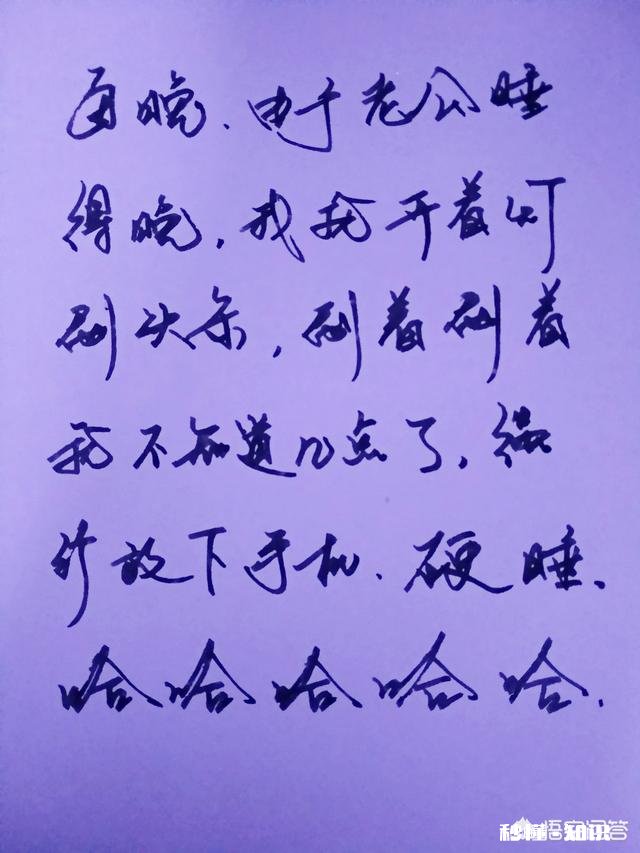 每晚、由于老公睡
得晚，我就开着灯
刷头条，刷着刷着
就不知道几点了，强
行放下手机、硬睡、
哈哈哈哈哈.
悟空问答
秒懂·知识